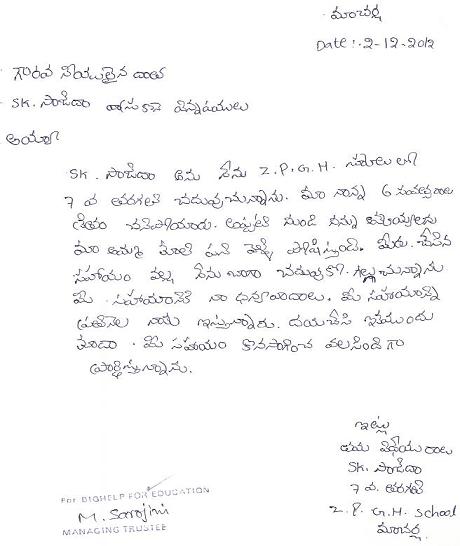 మాచర్ల
Date :- 2-12-2012
గౌరవనీయులైన దాత
SK. సాజిదా వ్రాసుకొనే విన్నపములు
అయ్యా
SK. సాజిదా అను నేను Z.P.G.H. స్కూలు లో
7 వ తరగతి చదువుచున్నాను. మా నాన్న 6 సంవత్సరాల
క్రితం చనిపోయారు. అప్పటి నుండి నన్ను
మా అమ్మ పని వెళ్ళి పోషిస్తుంది. మీరు చేసిన
సహాయం వల్ల నేను బాగా చదువుకో గల్గుచున్నాను
మీ సహాయానికి నా ధన్యవాదాలు. మీ సహాయాన్ని
ప్రతినెల నాకు ఇస్తున్నారు. దయచేసి ఇకముందు
కూడా మీ సహాయం కొనసాగించ వలసిందిగా
ప్రార్థిస్తున్నాను.
ఇట్లు
తమ విధేయురాలు
SK. సాజిదా
7 వ తరగతి
Z. P. G. H School
మాచర్ల
For BIGHELP FOR EDUCATION
M. Sarojini
MANAGING TRUSTEE